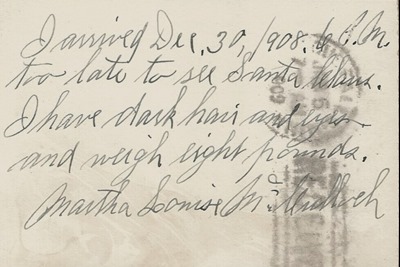 I arrived Dec. 30, 1908. 6 P.M.
too late to see Santa Claus.
I have dark hair and eyes
and weigh eight pounds.
Martha Louise McCulloch